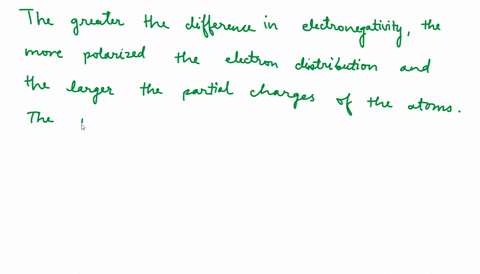 The greater the difference in electronegativity, the
more polarized the electron distribution and
the larger the partial charges of the atoms.
The